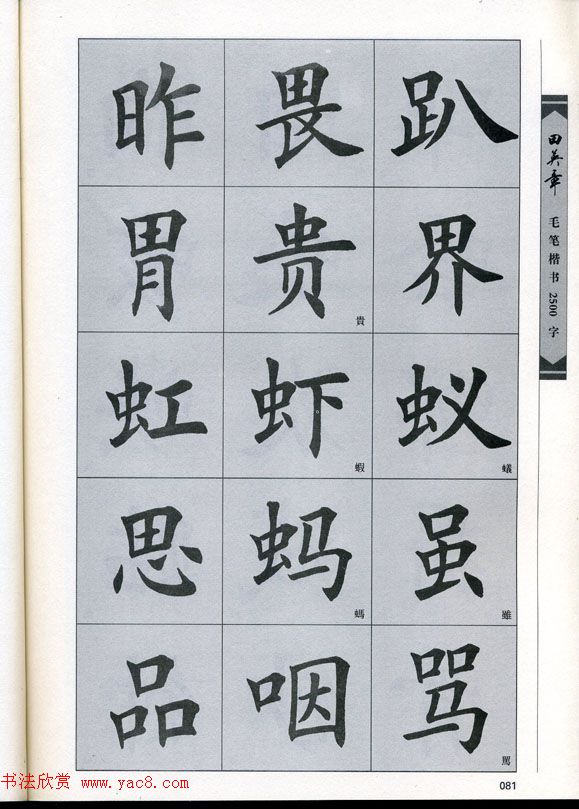 昨 畏 趴
胃 贵 貴 界
虹 虾 蝦 蚁 蟻
思 蚂 螞 虽 雖
品 咽 骂 駡
田英章
毛笔楷书2500字
081
书法欣赏 www.yac8.com